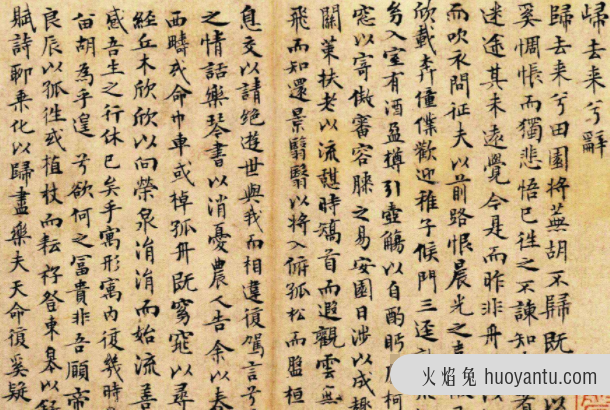 歸去来兮辭
歸去来兮田園将蕪胡不歸既以
奚惆悵而獨悲悟已徃之不諫知者
迷途其未遠覺今是而昨非舟
而吹衣問征夫以前路恨晨光之
欣載奔僮僕歡迎稚子候門三逕
入室有酒盈樽引壺觴以自酌眄柯
窓以寄傲審容膝之易安園日涉以成趣
關策扶老以流憩時矯首而遐觀雲無
飛而知還景翳翳以将入孤松而盤桓
息交以請絕遊世與我而相違復駕言兮
之情話樂琴書以消憂農人告余以春
西疇或命巾車或棹孤舟既窈窕以尋
經丘木欣欣以向榮泉涓涓而始流善
感吾生之行休已矣乎寓形寓内復幾時
胡為乎遑兮欲何之富貴非吾願帝
良辰以孤徃或植杖而耘耔登東皋以舒
賦詩聊乗化以歸盡樂夫天命復奚疑
火焰兔 huoyantu.com